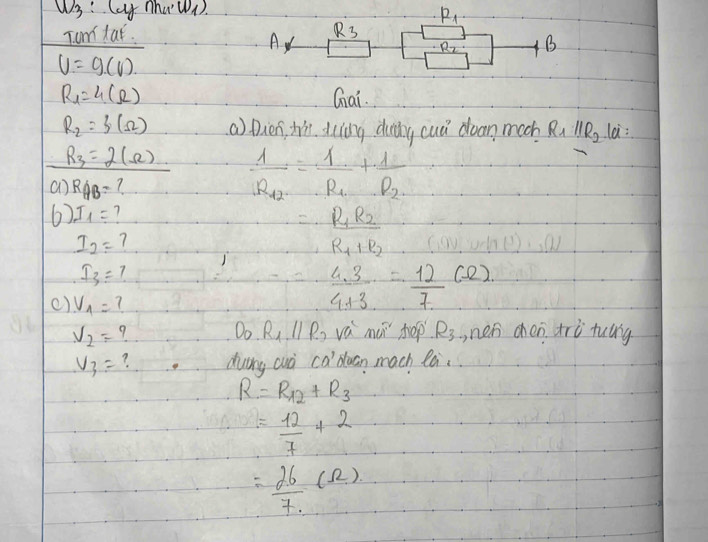 W3: (ly như W1)
Tóm tắt.
A R3 R1 R2 B
U = 9(V)
R1 = 4(Ω)
R2 = 3(Ω)
R3 = 2(Ω)
a) RAB = ?
b) I1 = ?
I2 = ?
I3 = ?
c) V1 = ?
V2 = ?
V3 = ?
Giải.
a) Điện trở tương đương của đoạn mạch R1 // R2 là:
1/R12 = 1/R1 + 1/R2
= R1R2/(R1+R2)
= 4.3/(4+3) = 12/7 (Ω).
Do R1 // R2 và nối tiếp R3, nên điện trở tương
đương của cả đoạn mạch là.
R = R12 + R3
= 12/7 + 2
= 26/7 (Ω).